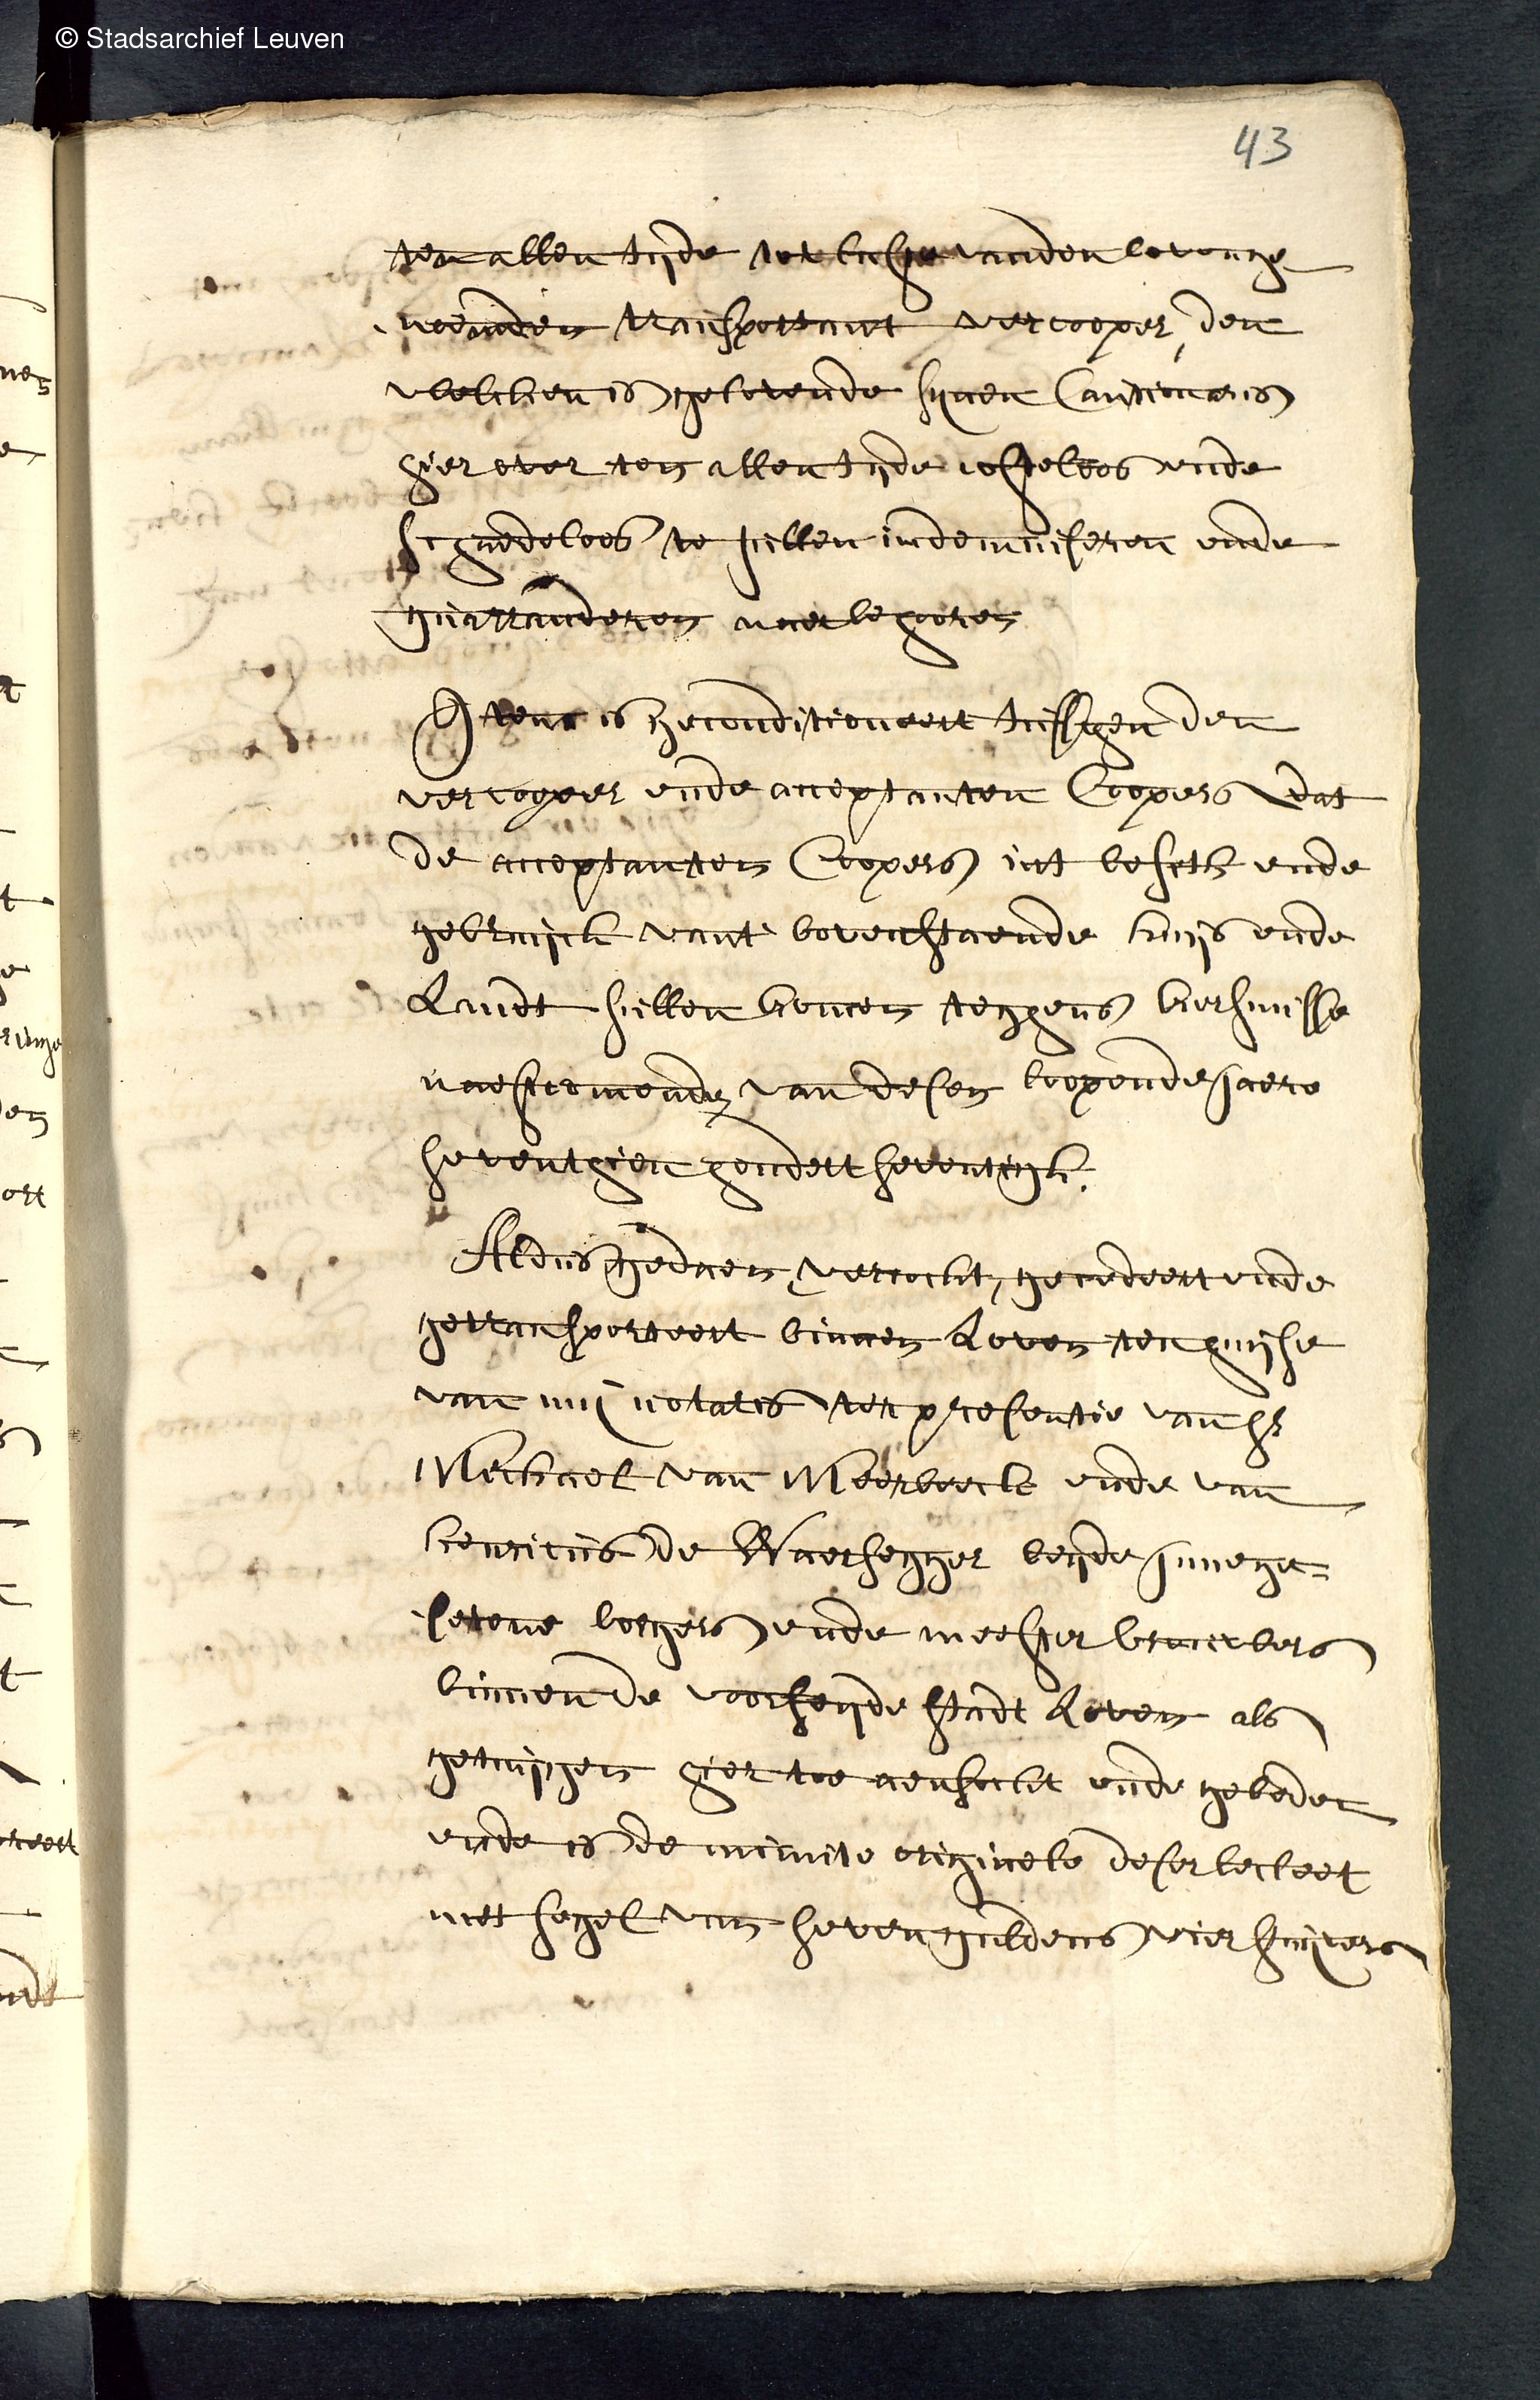 © Stadsarchief Leuven
43
ten allen tijde tot laste vanden bovenge
noemden transportant vercooper, den
welcken is gelovende sijnen Cautionaris
hier over ten allen tijde costeloos ende
schaedeloos te sullen indemniseren ende
guarranderen naer behooren
Item is geconditioneert tusschen den
vercooper ende acceptanten Coopers dat
de acceptanten Coopers int besith ende
gebruijck vant bovenstaende huijs ende
Landt sullen komen teghens kersmisse
naestcomende van desen loopende jaere
seventhien hondert seventigh.
Aldus gedaen, vercocht, gecedeert ende
getransporteert binnen Loven ten huijse
van mij notaris ter presentie van Sr
Michael van Meerbeeck ende van
henricus de Waersegger beijde innege=
setene borgers ende meester bruwers
binnen de voorseijde stadt Loven als
getuijgen hier toe aensocht ende gebeden
ende is de minute originele deser becleet
met segel van seven guldens vier stuijvers